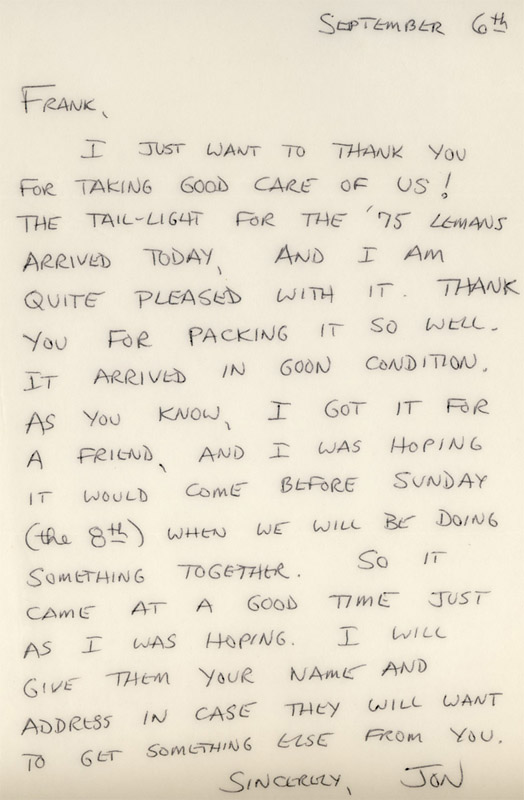 September 6th
Frank,
I just want to thank you
for taking good care of us!
The tail-light for the '75 Lemans
arrived today, and I am
quite pleased with it. Thank
you for packing it so well.
It arrived in goon condition.
As you know, I got it for
a friend, and I was hoping
it would come before Sunday
(the 8th) when we will be doing
something together. So it
came at a good time just
as I was hoping. I will
give them your name and
address in case they will want
to get something else from you.
Sincerely, Jon